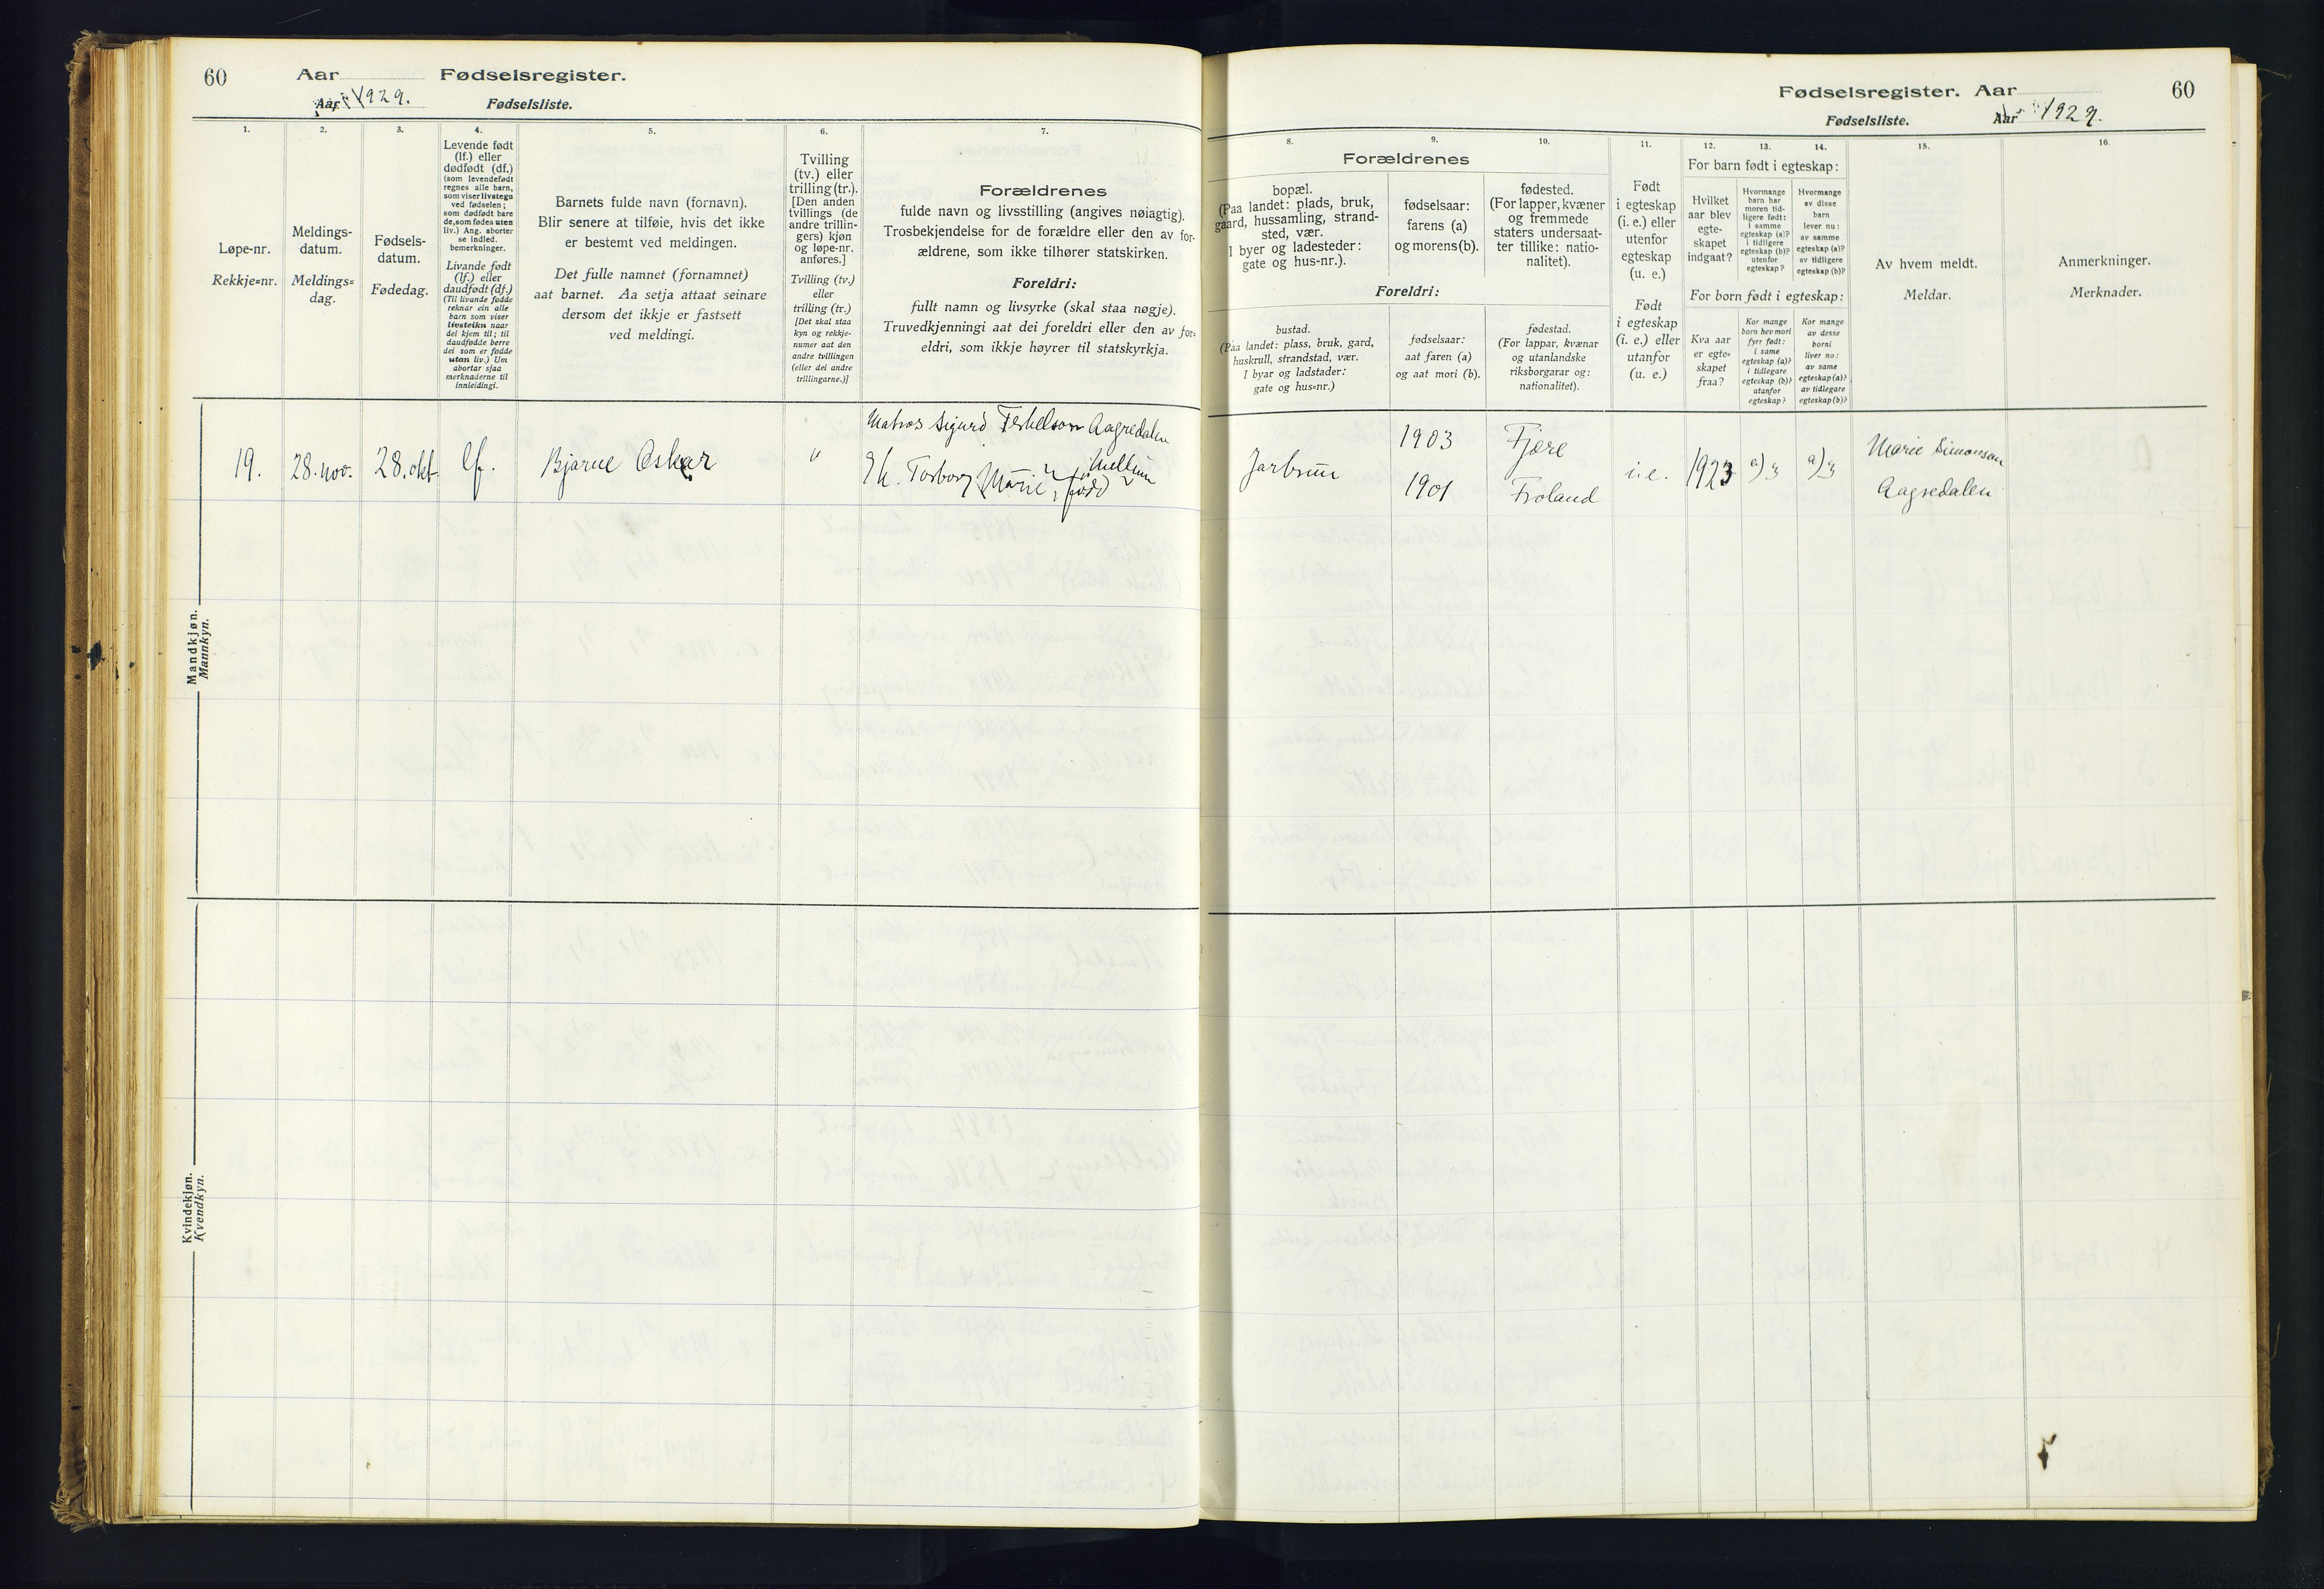 60
Aar
Fødselsregister.
Aar 1929.
Fødselsliste.
1.
2.
3.
4.
5.
6.
7.
Løpe-nr.
Rekkje=nr.
Meldings-
datum.
Meldings=
dag.
Fødsels-
datum.
Fødedag.
Levende født
(lf.) eller
dødfødt (df.)
(som levendefødt
regnes alle barn,
som viser livstegn
ved fødselen;
som dødfødt bare
de, som fødes uten
liv.) Ang. aborter
se indled.
bemerkninger.
Livande født
(lf.) eller
daudfødt (df.)
(Til livande fødde
reknar ein alle
barn som viser
livsteikn naar
dei kjem til; til
daudfødde berre
dei som er fødde
utan liv.) Um
abortar sjaa
merknaderne til
innleidingi.
Barnets fulde navn (fornavn).
Blir senere at tilføie, hvis det ikke
er bestemt ved meldingen.
Det fulle namnet (fornamnet)
aat barnet. Aa setja attaat seinare
dersom det ikkje er fastsett
ved meldingi.
Tvilling
(tv.) eller
trilling (tr.).
[Den anden
tvillings (de
andre trillin-
gers) kjøn
og løpe-nr.
anføres.]
Tvilling (tv.)
eller
trilling (tr.)
[Det skal staa
kyn og rekkje-
numer aat den
andre tvillingen
(eller dei andre
trillingarne.)]
Forældrenes
fulde navn og livsstilling (angives nøiagtig).
Trosbekjendelse for de forældre eller den av for-
ældrene, som ikke tilhører statskirken.
Foreldri:
fullt namn og livsyrke (skal staa nøgje).
Truvedkjenningi aat dei foreldri eller den av for-
eldri, som ikkje høyrer til statskyrkja.
Mandkjøn.
Mannkyn.
19.
28. nov.
28. okt.
lf.
Bjarne Oskar
"
Matros Sigurd Terkelsen Aagredalen
Hu. Torborg Marie, født
Kvindekjøn.
Kvendkyn.
Fødselsregister. Aar
60
Fødselsliste.
Aar 1929.
8.
9.
10.
11.
12.
13.
14.
15.
16.
Forældrenes
bopæl.
(Paa landet: plads, bruk,
gaard, hussamling, strand-
sted, vær.
I byer og ladesteder:
gate og hus-nr.).
fødselsaar:
farens (a)
og morens (b).
fødested.
(For lapper, kvæner
og fremmede
staters undersaat-
ter tillike: natio-
nalitet).
Foreldri:
bustad.
(Paa landet: plass, bruk, gard,
huskrull, strandstad, vær.
I byar og ladstader:
gate og hus=nr.)
fødselsaar:
aat faren (a)
og aat mori (b).
fødestad.
(For lappar, kvænar
og utanlandske
riksborgarar og:
nationalitet).
Født
i egteskap
(i. e.) eller
utenfor
egteskap
(u. e.)
Født
i egteskap
(i. e.) eller
utanfor
egteskap
(u. e.)
For barn født i egteskap:
Hvilket
aar blev
egte-
skapet
indgaat?
Hvormange
barn har
moren tid-
ligere født:
i samme
egteskap (a)?
i tidligere
egteskap (b)?
utenfor
egteskap?
Hvormange
av disse
barn
lever nu:
av samme
egteskap (a)?
av tidligere
egteskap (b)?
For born født i egteskap:
Kva aar
er egte=
skapet
fraa?
Kor mange
born hev mori
fyrr født:
i same
egteskap (a)?
i tidlegare
egteskap (b)?
utanfor
egteskap?
Kor mange
av desse
borni
liver no:
av same
egteskap (a)?
av tidlegare
egteskap (b)?
Av hvem meldt.
Meldar.
Anmerkninger.
Merknader.
1903
1901
Fjære
Froland
i. e.
1923
a) 3
a) 3
Marie Simonsen
Aagredalen